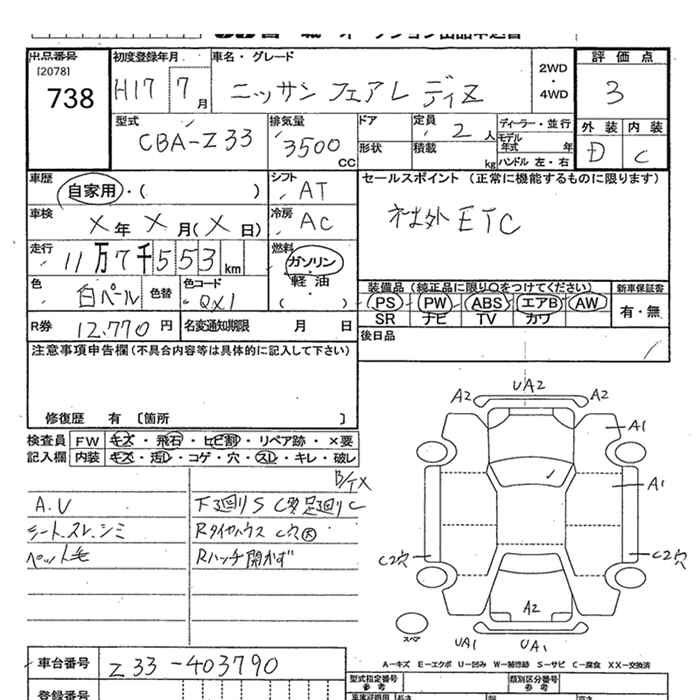 出品番号
[2078]
738
初度登録年月
H17 7月
車名・グレード
ニッサン フェアレディZ
2WD
・4WD
評価点
3
外装 内装
D C
型式
CBA-Z33
排気量
3500
CC
ドア
形状
定員 2人
積載 kg
ディーラー・並行
モデル年式 年
ハンドル 左・右
車歴
自家用・( )
シフト
AT
車検
X年X月(X日)
冷房
AC
走行
11万7千553km
燃料
ガソリン
・
軽油
( )
色
白パール
色替
色コード
QX1
R券 12,770円
名変通知期限 月 日
セールスポイント (正常に機能するものに限ります)
社外ETC
装備品 (純正品に限り○をつけてください)
PS PW ABS エアB AW
SR ナビ TV カワ
新車保証書
有・無
後日品
注意事項申告欄(不具合内容等は具体的に記入して下さい)
修復歴 有 〔箇所 〕
検査員 FW キズ・飛石・ヒビ割・リペア跡・×要
記入欄 内装 キズ・汚レ・コゲ・穴・スレ・キレ・破レ
A.V
シート.スレ.シミ
ペット毛
下廻りSC 足廻りC
Rタイヤハウス C穴大
Rハッチ開かず
A2 UA2 A2
A1
A1
C2穴
C2穴
A2
UA1 UA1
スペア
A―キズ E―エクボ U―凹み W―補修跡 S―サビ C―腐食 XX―交換済
車台番号 Z33-403790
登録番号
型式指定番号
参考
類別区分番号
参考